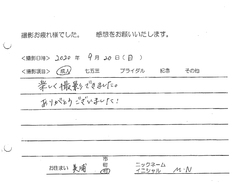 撮影お疲れ様でした。　感想をお願いいたします。
＜撮影日時＞ 2020 年 9 月 20 日（日）
＜撮影項目＞ 成人 七五三 ブライダル 記念 その他
楽しく撮影できました。
ありがとうございました！
お住まい 美浦 市 町 村 ニックネーム イニシャル M・N